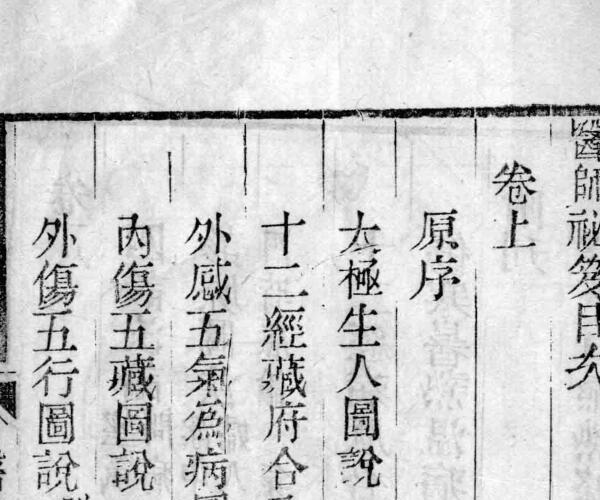 醫師祕笈目次
卷上
原序
太極生人圖說
十二經臟府合
外感五氣為病
內傷五臟圖說
外傷五行圖說